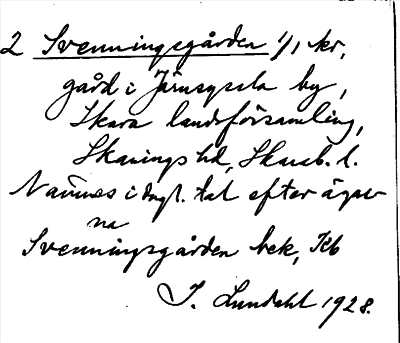 2 Svenningsgården 1/1 kr,
gård i Järnsyssla by,
Skara landsförsamling,
Skånings hd, Skarab. l.
Namnes i dagl. tal efter ägar
na
Svenningsgården bek, Kb
J. Lundahl 1928.